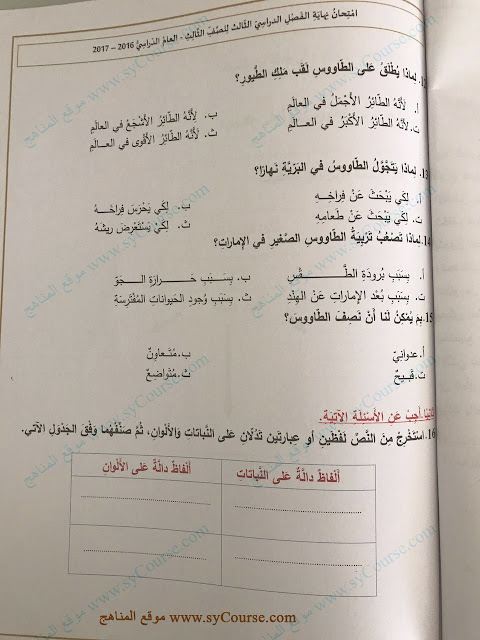 امْتِحانُ نِهايَةِ الفَصْلِ الدراسِيِّ الثّالث لِلصَّفِّ الثّالِثِ - العامُ الدّراسِيُّ 2016 – 2017
لِماذا يُطْلَقُ عَلى الطّاووسِ لَقَبُ مَلِكِ الطُّيورِ؟
أ. لِأَنَّهُ الطّائِرُ الأَجْمَلُ في العالَمِ
ب. لِأَنَّهُ الطّائِرُ الأَشْجَعُ في العالَمِ
ت. لِأَنَّهُ الطّائِرُ الأَكْبَرُ في العـالَمِ
ث. لِأَنَّهُ الطّائِرُ الأَقْوى في العـالَمِ
13. لِماذا يَتَجَوَّلُ الطّاووسُ في البَرِّيَّةِ نَهارًا؟
أ. لِكَيْ يَبْحَثَ عَنْ فِراخِــهِ
ب. لِكَيْ يَحْرُسَ فِراخَــهُ
ت. لِكَيْ يَبْحَثَ عَنْ طَعامِهِ
ث. لِكَيْ يَسْتَعْرِضَ ريشَهُ
14. لِماذا تَصْعُبُ تَرْبِيَةُ الطّاووسِ الصَّغيرِ في الإِماراتِ؟
أ. بِسَبَبِ بُرودَةِ الطَّــــقْسِ
ب. بِسَبَبِ حَــرارَةِ الجَــوِّ
ت. بِسَبَبِ بُعْدِ الإِماراتِ عَنْ الهِنْدِ
ث. بِسَبَبِ وُجودِ الحَيواناتِ المُفْتَرِسَةِ
15. بِمَ يُمْكِنُ لَنا أَنْ نَصِفَ الطّاووسَ؟
أ. عدوانيّ
ب. مُتَـعاوِنٌ
ت. قَبــيحٌ
ث. مُتَواضِعٌ
ثانِيًا: أَجِبْ عَنِ الأَسْئِلَةِ الآتِيَةِ.
16. اسْتَخْرِجْ مِنَ النَّصِّ لَفْظَيْنِ أَوْ عِبارَتَينِ تَدُلّانِ عَلى النَّباتاتِ وَالأَلْوانِ، ثُمَّ صَنِّفْهُما وِفْقَ الجَدْوَلِ الآتي.
أَلْفاظٌ دالَّةٌ عَلى النَّباتاتِ
أَلْفاظٌ دالَّةٌ عَلى الأَلْوانِ
موقع المناهج www.syCourse.com